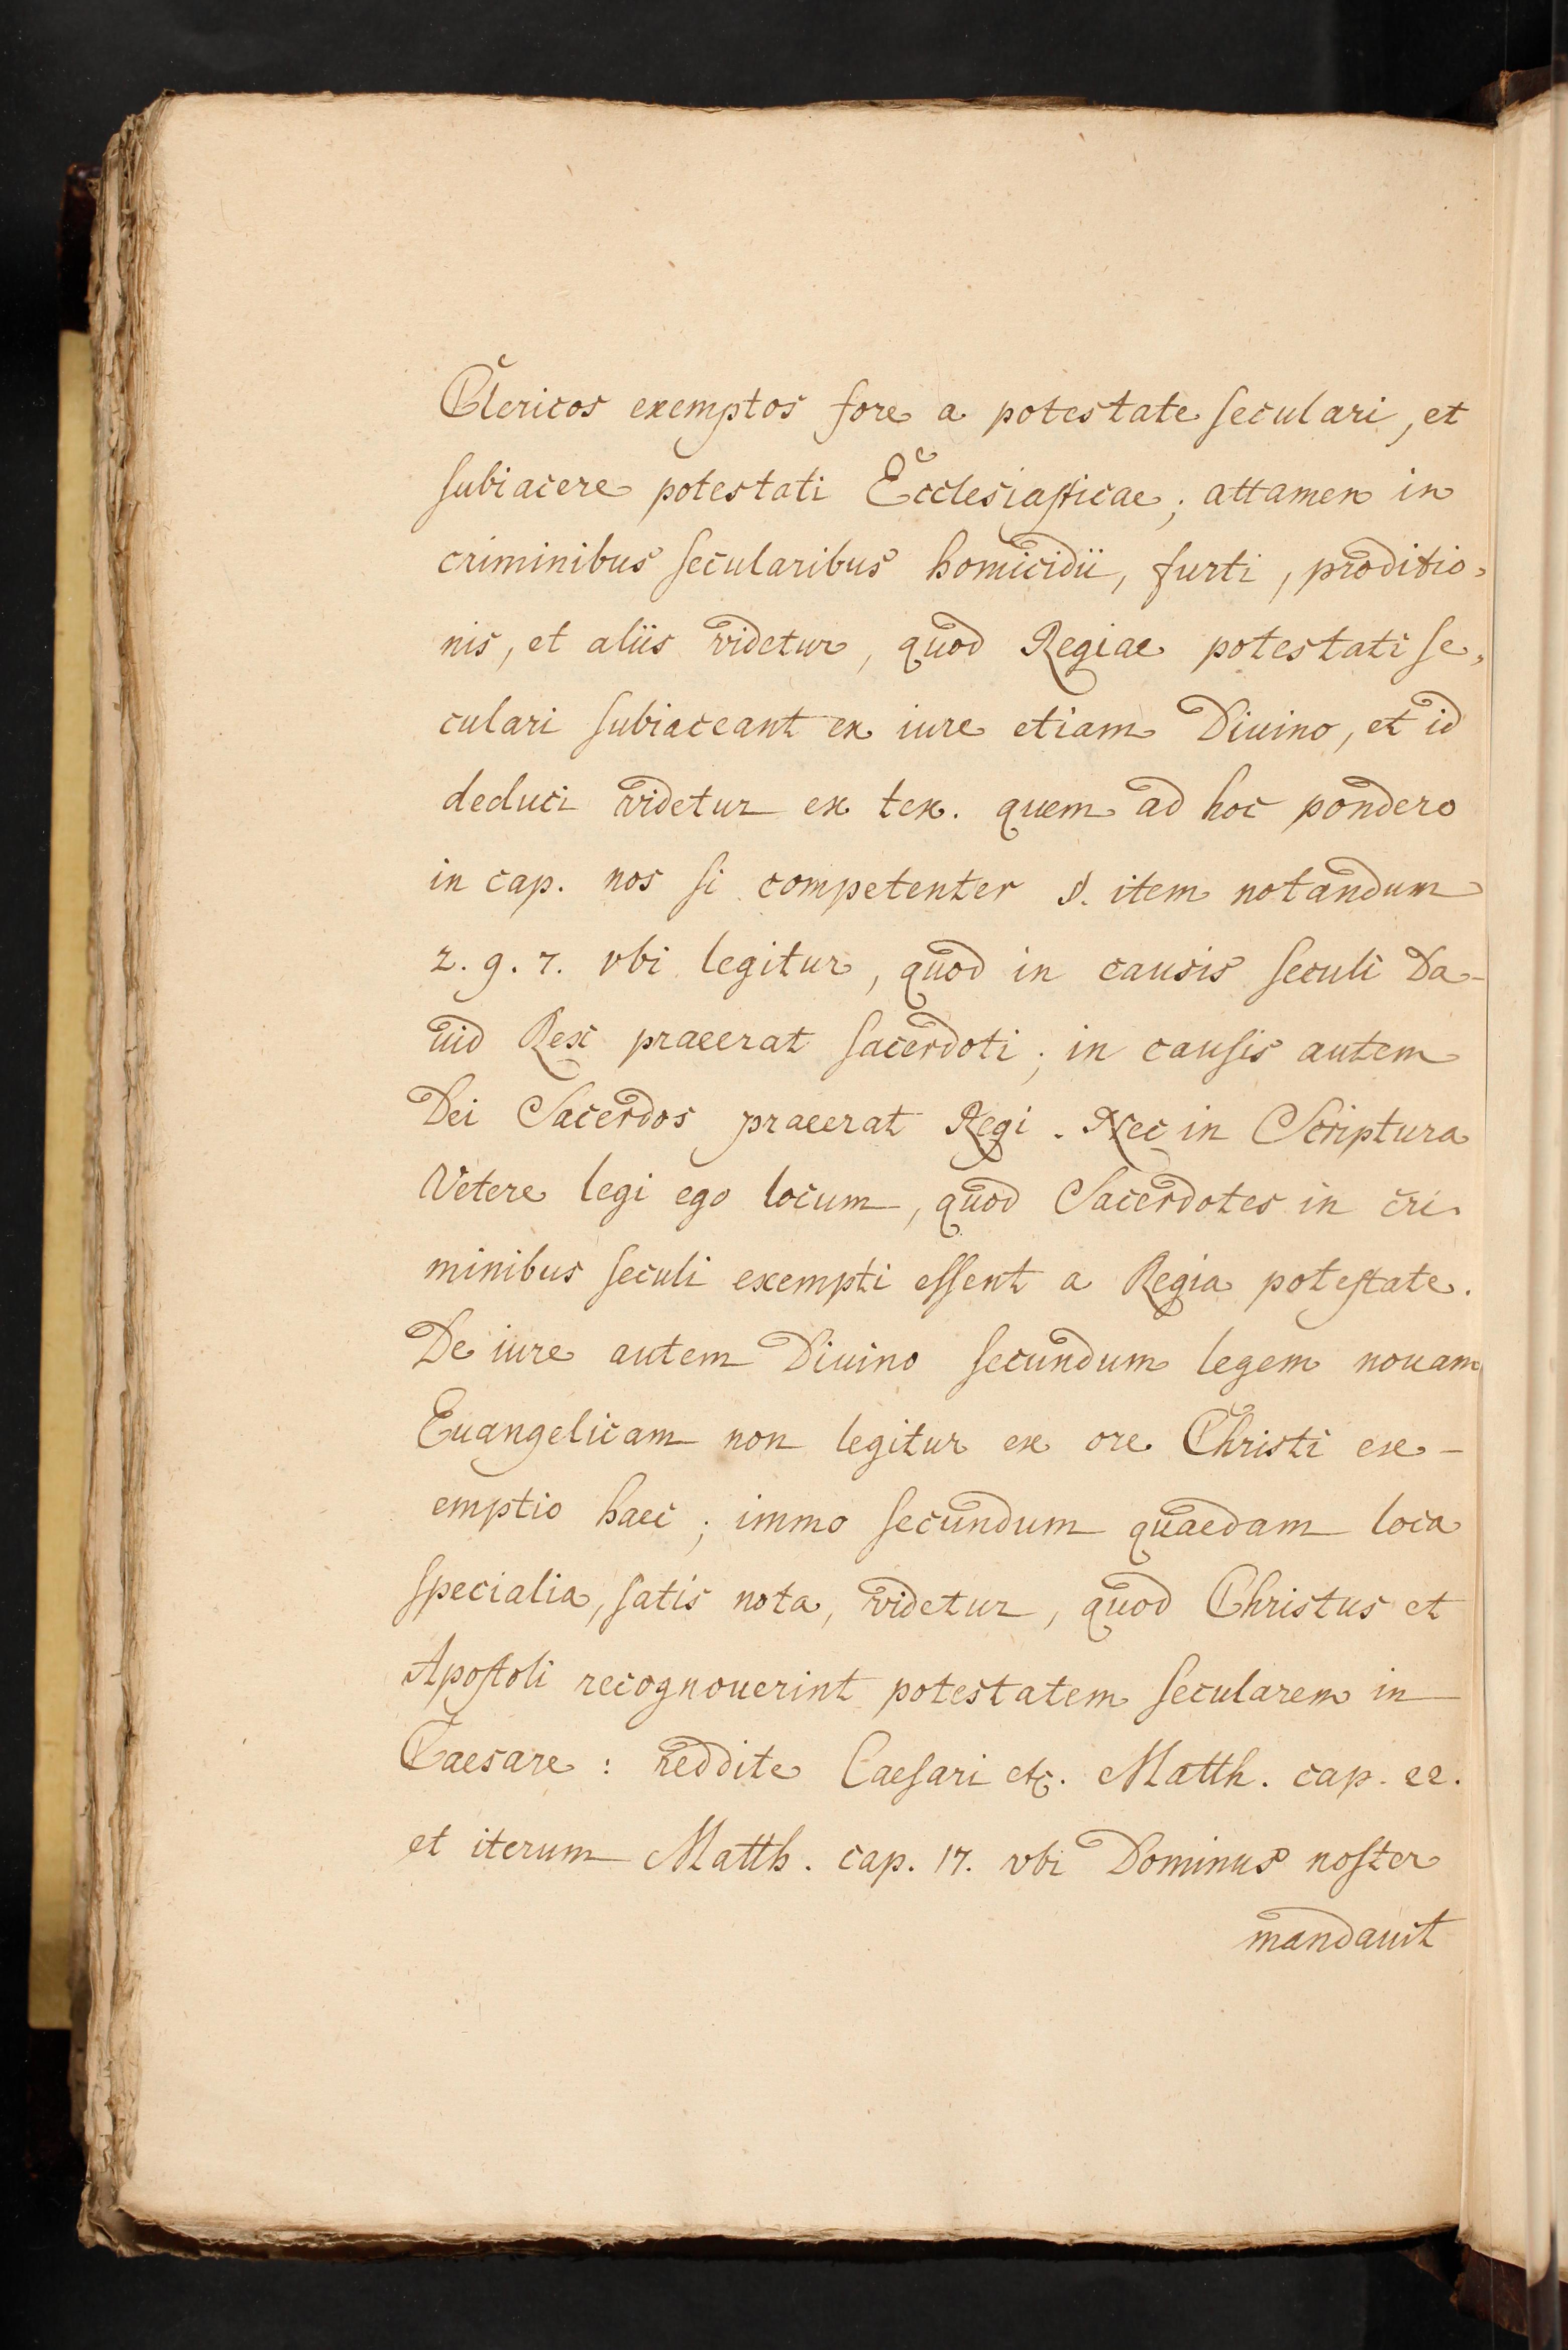 Clericos exemptos fore a potestate seculari, et
subiacere potestati Ecclesiasticae; attamen in
criminibus secularibus homicidii, furti, proditio,
nis, et aliis videtur, quod Regiae potestati se,
culari subiaceant ex iure etiam Diuino, et id
deduci videtur ex tex. quem ad hoc pondero
in cap. nos si competenter §. item notandum
2. q. 7. vbi legitur, quod in causis seculi Da-
uid Rex praeerat sacerdoti; in causis autem
Dei Sacerdos praeerat Regi. Nec in Scriptura
Vetere legi ego locum, quod Sacerdotes in cri-
minibus seculi exempti essent a Regia potestate.
De iure autem Diuino secundum legem nouam
Euangelicam non legitur ex ore Christi ex-
emptio haec; immo secundum quaedam loca
specialia, satis nota, videtur, quod Christus et
Apostoli recognouerint potestatem secularem in
Caesare: reddite Caesari etc. Matth. cap. 22.
et iterum Matth. cap. 17. vbi Dominus noster
mandauit